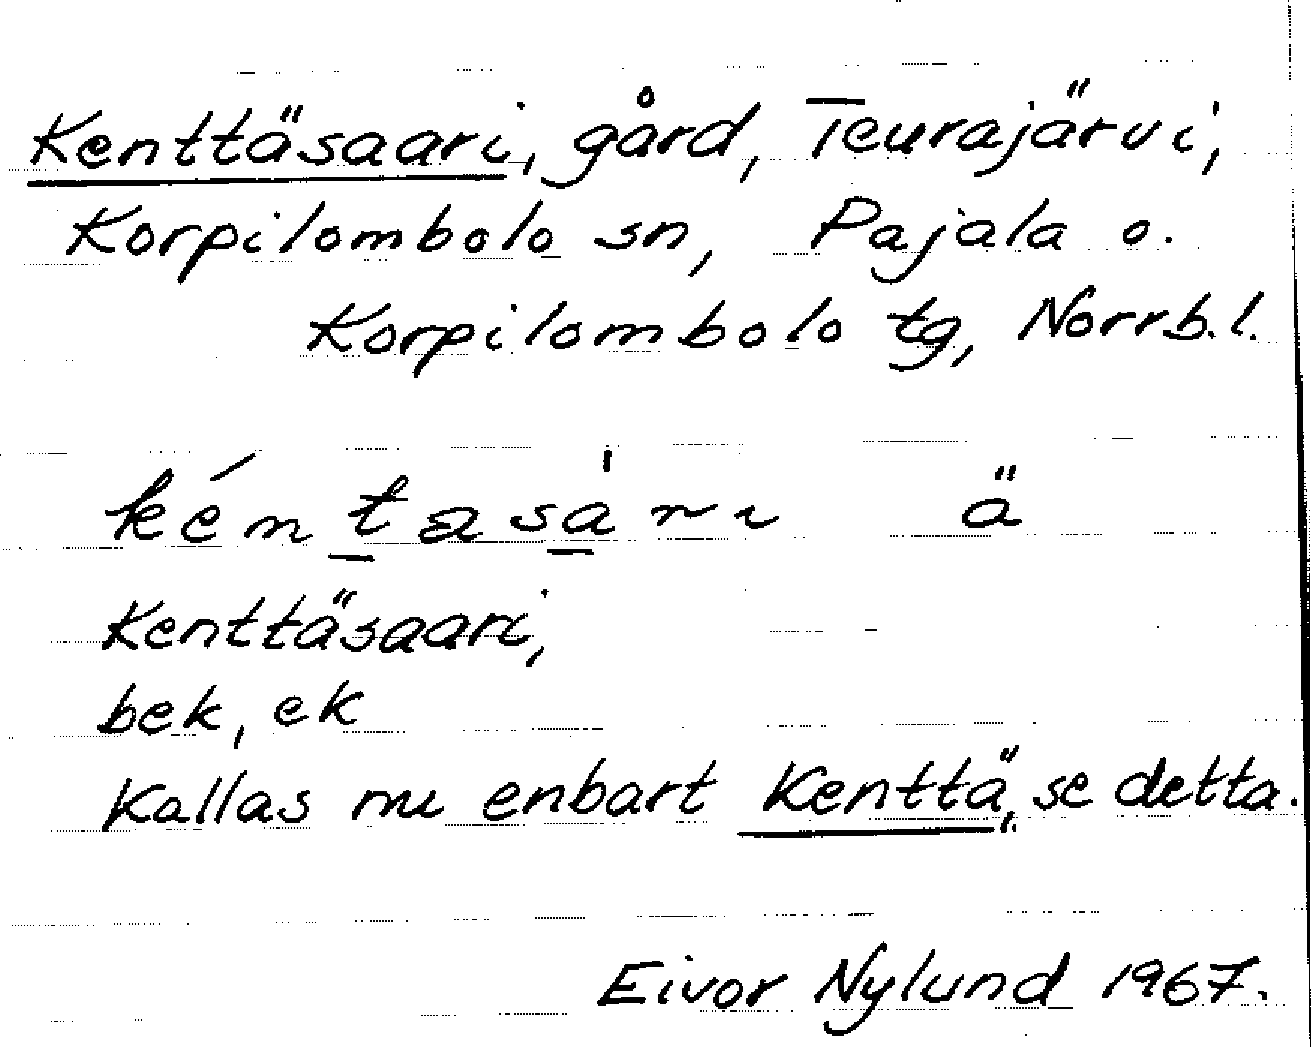 Kenttäsaari, gård, Teurajärvi,
Korpilombolo sn, Pajala o.
Korpilombolo tg, Norrb.l.
kéntasàri ä
Kenttäsaari,
bek, ek
Kallas nu enbart Kenttä, se detta.
Eivor Nylund 1967.